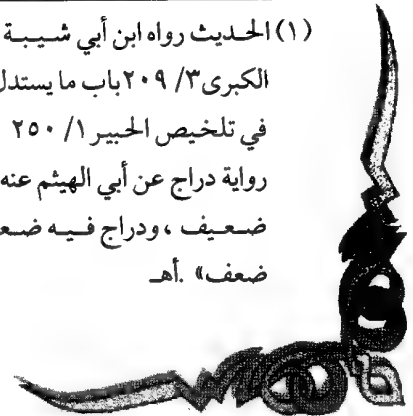 (١) الحديث رواه ابن أبي شيبة
الكبرى ٣/ ٢٠٩ باب ما يستدل
في تلخيص الحبير ١/ ٢٥٠
رواية دراج عن أبي الهيثم عنه
ضعيف ، ودراج فيه ضعـ
ضعف» . أهـ